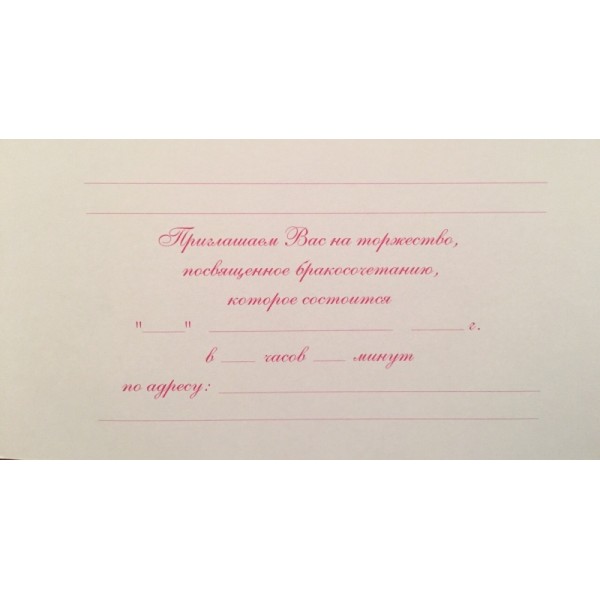 Приглашаем Вас на торжество,
посвященное бракосочетанию,
которое состоится
"____" ____________________ ______ г.
в ____ часов ____ минут
по адресу: ____________________